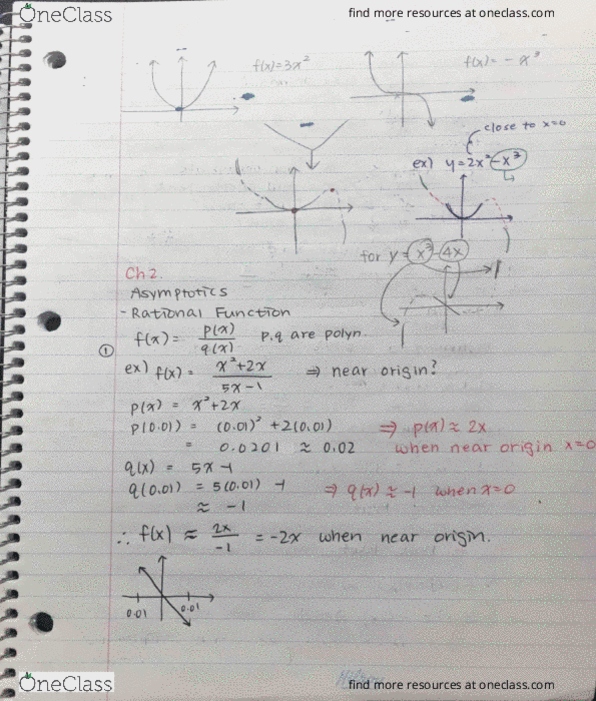 OneClass
find more resources at oneclass.com
f(x)=3x²
f(x)= -x³
close to x=0
ex) y=2x²-x³
for y = x³-4x
Ch 2.
Asymptotics
- Rational Function
f(x) = p(x)/q(x) p.q are polyn.
①
ex) f(x) = x²+2x / 5x-1 ⇒ near origin?
p(x) = x²+2x
p(0.01) = (0.01)² + 2(0.01) ⇒ p(x) ≈ 2x
= 0.0201 ≈ 0.02 when near origin x=0
q(x) = 5x-1
q(0.01) = 5(0.01) -1 ⇒ q(x) ≈ -1 when x=0
≈ -1
∴ f(x) ≈ 2x/-1 = -2x when near origin.
0.01 0.01
OneClass
find more resources at oneclass.com